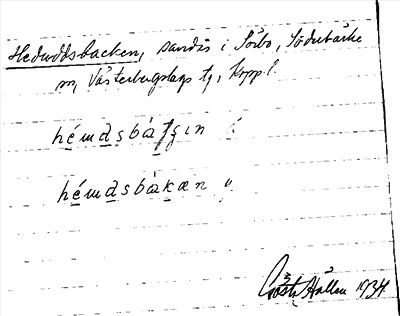 Heduddsbacken, sandås i Sörbo, Söderbärke
sn, Västerbergslags tg, Koppl.
hémdsbáʃʃin
hémdsbákæn
Gösta Hállen 1934.